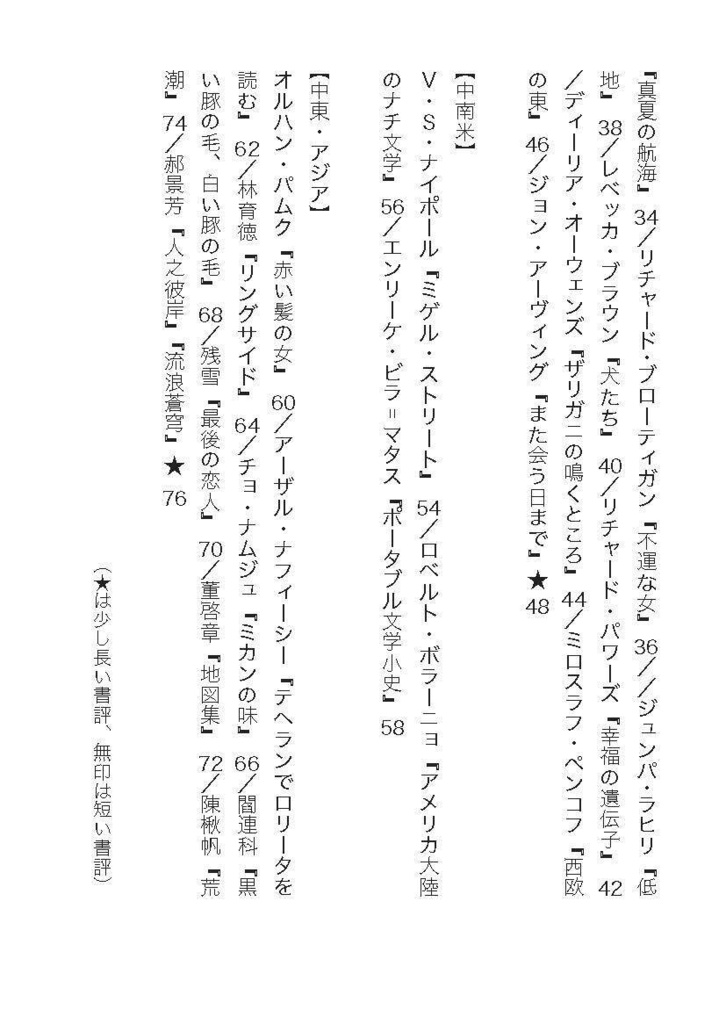 『真夏の航海』 34／リチャード・ブローティガン『不運な女』 36／／ジュンパ・ラヒリ『低
地』 38／レベッカ・ブラウン『犬たち』 40／リチャード・パワーズ『幸福の遺伝子』 42
／ディーリア・オーウェンズ『ザリガニの鳴くところ』 44／ミロスラフ・ペンコフ『西欧
の東』 46／ジョン・アーヴィング『また会う日まで』★ 48
【中南米】
V・S・ナイポール『ミゲル・ストリート』 54／ロベルト・ボラーニョ『アメリカ大陸
のナチ文学』 56／エンリーケ・ビラ＝マタス『ポータブル文学小史』 58
【中東・アジア】
オルハン・パムク『赤い髪の女』 60／アーザル・ナフィーシー『テヘランでロリータを
読む』 62／林育徳『リングサイド』 64／チョ・ナムジュ『ミカンの味』 66／閻連科『黒
い豚の毛、白い豚の毛』 68／残雪『最後の恋人』 70／董啓章『地図集』 72／陳楸帆『荒
潮』 74／郝景芳『人之彼岸』『流浪蒼穹』★ 76
（★は少し長い書評、無印は短い書評）